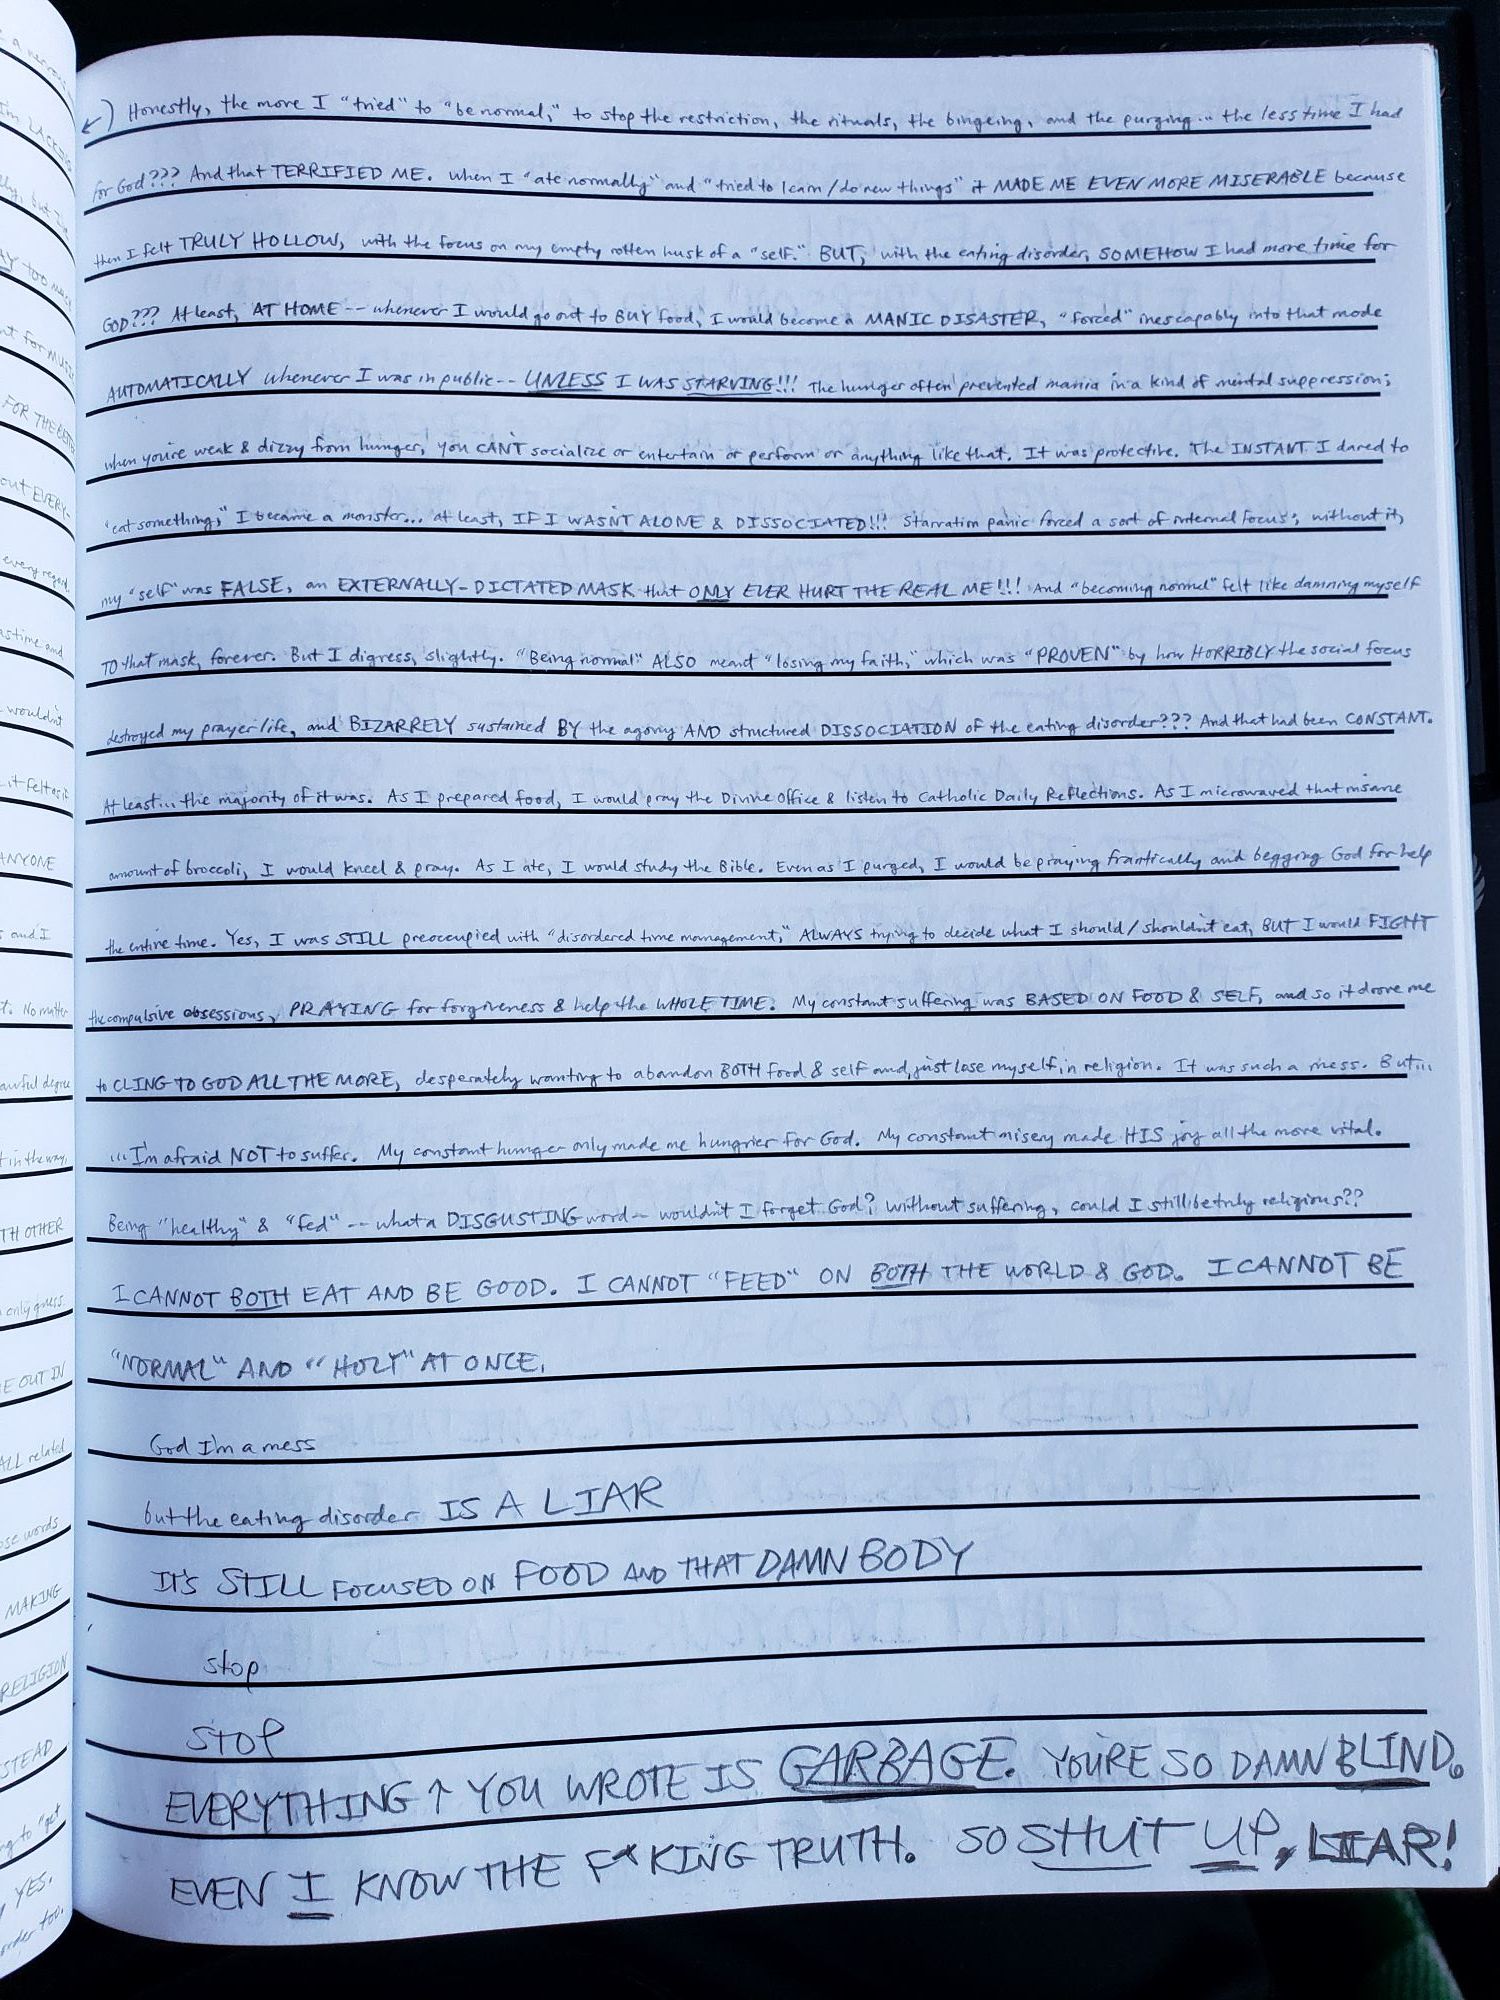 ↙) Honestly, the more I "tried" to "be normal," to stop the restriction, the rituals, the bingeing, and the purging... the less time I had
for God??? And that TERRIFIED ME. When I "ate normally" and "tried to learn/do new things" it MADE ME EVEN MORE MISERABLE because
then I felt TRULY HOLLOW, with the focus on my empty rotten husk of a "self." BUT, with the eating disorder, SOMEHOW I had more time for
GOD??? At least, AT HOME -- whenever I would go out to BUY food, I would become a MANIC DISASTER, "forced" inescapably into that mode
AUTOMATICALLY whenever I was in public -- UNLESS I WAS STARVING!!! The hunger often prevented mania in a kind of mental suppression;
when you're weak & dizzy from hunger, you CAN'T socialize or entertain or perform or anything like that. It was protective. The INSTANT I dared to
"eat something," I became a monster... at least, IF I WASN'T ALONE & DISSOCIATED!!! Starvation panic forced a sort of internal focus; without it,
my "self" was FALSE, an EXTERNALLY-DICTATED MASK that ONLY EVER HURT THE REAL ME!!! And "becoming normal" felt like damning myself
TO that mask, forever. But I digress, slightly. "Being normal" ALSO meant "losing my faith," which was "PROVEN" by how HORRIBLY the social focus
destroyed my prayer life, and BIZARRELY sustained BY the agony AND structured DISSOCIATION of the eating disorder??? And that had been CONSTANT.
At least... the majority of it was. As I prepared food, I would pray the Divine Office & listen to Catholic Daily Reflections. As I microwaved that insane
amount of broccoli, I would kneel & pray. As I ate, I would study the Bible. Even as I purged, I would be praying frantically and begging God for help
the entire time. Yes, I was STILL preoccupied with "disordered time management," ALWAYS trying to decide what I should/shouldn't eat, BUT I would FIGHT
the compulsive obsessions, PRAYING for forgiveness & help the WHOLE TIME. My constant suffering was BASED ON FOOD & SELF, and so it drove me
to CLING TO GOD ALL THE MORE, desperately wanting to abandon BOTH food & self and just lose myself in religion. It was such a mess. But...
...I'm afraid NOT to suffer. My constant hunger only made me hungrier for God. My constant misery made HIS joy all the more vital.
Being "healthy" & "fed" -- what a DISGUSTING word -- wouldn't I forget God? Without suffering, could I still be truly religious??
I CANNOT BOTH EAT AND BE GOOD. I CANNOT "FEED" ON BOTH THE WORLD & GOD. I CANNOT BE
"NORMAL" AND "HOLY" AT ONCE.
God I'm a mess
but the eating disorder IS A LIAR
IT'S STILL FOCUSED ON FOOD AND THAT DAMN BODY
stop
STOP
EVERYTHING ↑ YOU WROTE IS GARBAGE. YOU'RE SO DAMN BLIND.
EVEN I KNOW THE F*KING TRUTH. SO SHUT UP, LIAR!